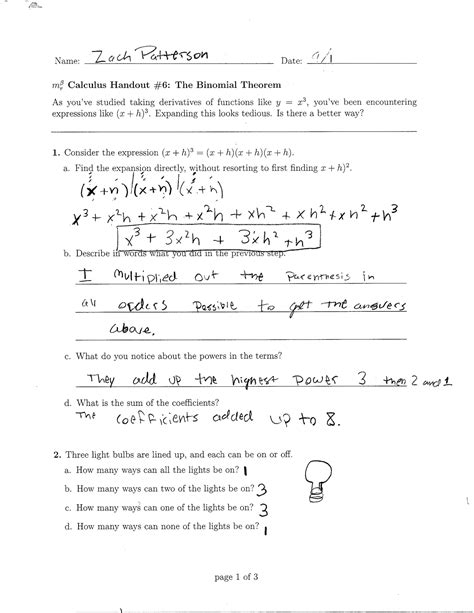 Name: Zach Patterson Date: 9/1
Calculus Handout #6: The Binomial Theorem
As you've studied taking derivatives of functions like y = x³, you've been encountering
expressions like (x + h)³. Expanding this looks tedious. Is there a better way?
1. Consider the expression (x + h)³ = (x + h)(x + h)(x + h).
a. Find the expansion directly, without resorting to first finding x + h)².
(x+h)(x+h)(x+h)
x³ + x²h + x²h + x²h + xh² + xh² + xh² + h³
x³ + 3x²h + 3xh² + h³
b. Describe in words what you did in the previous step.
I multiplied out the Parenthesis in
all orders Possible to get the answers
above.
c. What do you notice about the powers in the terms?
They add up the highest Power 3 then 2 and 1
d. What is the sum of the coefficients?
The coefficients added up to 8.
2. Three light bulbs are lined up, and each can be on or off.
a. How many ways can all the lights be on? 1
b. How many ways can two of the lights be on? 3
c. How many ways can one of the lights be on? 3
d. How many ways can none of the lights be on? 1
page 1 of 3